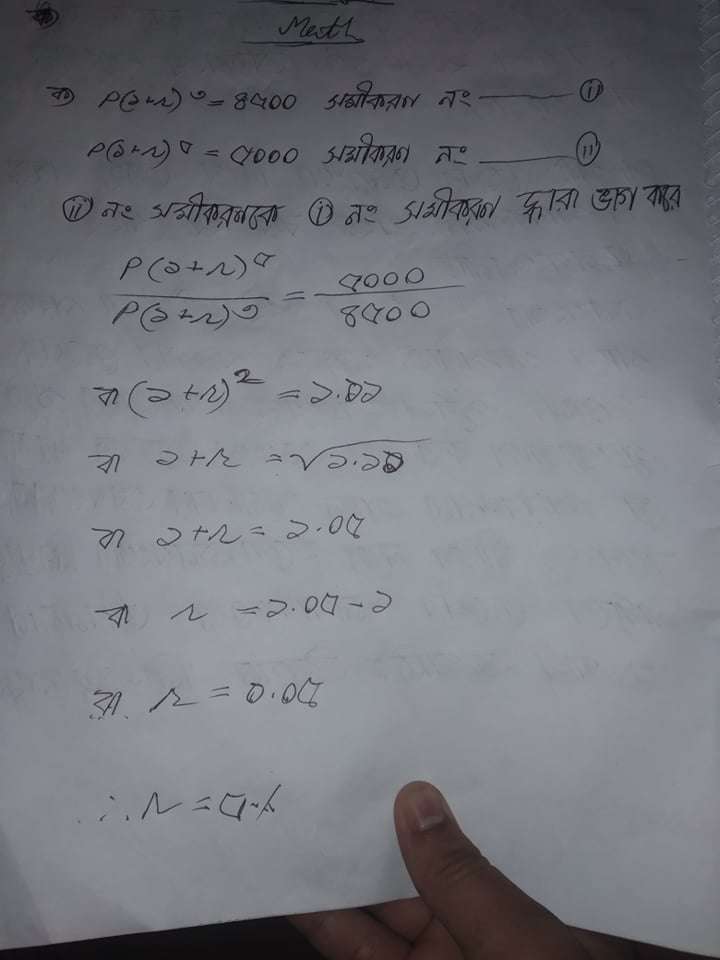 Math
ক) P(১+r)^৩ = ৪৫০০ সমীকরণ নং — (i)
P(১+r)^৫ = ৫০০০ সমীকরণ নং — (ii)
(ii) নং সমীকরণকে (i) নং সমীকরণ দ্বারা ভাগ করে
P(১+r)^৫ / P(১+r)^৩ = ৫০০০ / ৪৫০০
বা (১+r)^2 = ১.
বা ১+r = √১.১
বা ১+r = ১.০৫
বা r = ১.০৫-১
বা r = ০.০৫
∴ r = ৫%